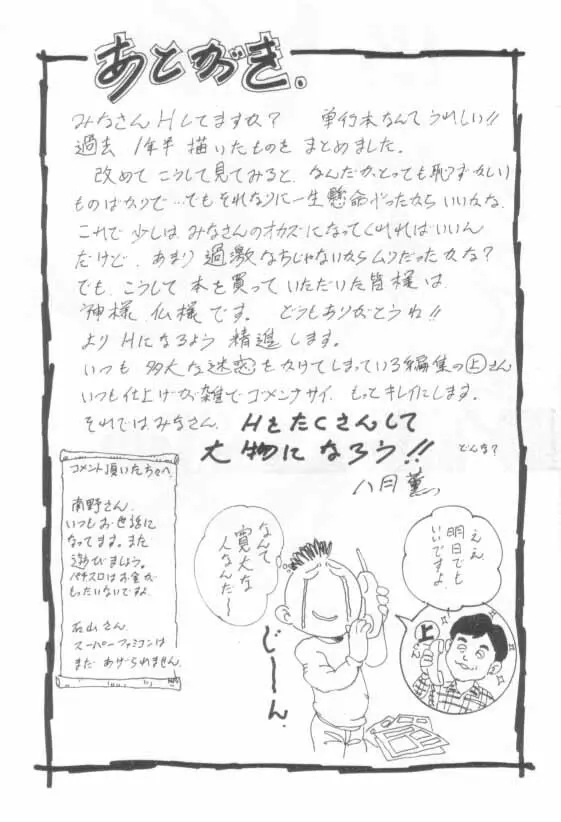 あとがき.
みなさんHしてますか？　単行本なんてうれしい!!
過去 1年半 描いたものを まとめました.
改めて こうして見てみると、なんだか、とっても恥ずかしい
ものばかりで…でもそれなりに一生懸命だったからいいかな.
これで 少しは みなさんのオカズになってくれればいいん
だけど、あまり 過激なちじゃないからムリだったかな？
でも、こうして 本を買って いただいた皆様は、
神様、仏様です。 どうもありがとうね!!
より Hになるよう 精進 します。
いつも 多大な迷惑をかけてしまっている編集の㊤さん
いつも仕上げが雑でゴメンナサイ. もっとキレイにします.
それではみなさん、Hをたくさんして
大物になろう!! どんな？
八月薫
コメント頂いたちゃへ
南野さん.
いつもお世話に
なってます。また
遊びましょう。
パチスロはお金が
もったいないですよ
石山さん.
スーパーファミコンは
まだ あげられません
ええ
明日でも
いいですよ
なんて
寛大な
人なんだ〜
上
じ〜〜ん.